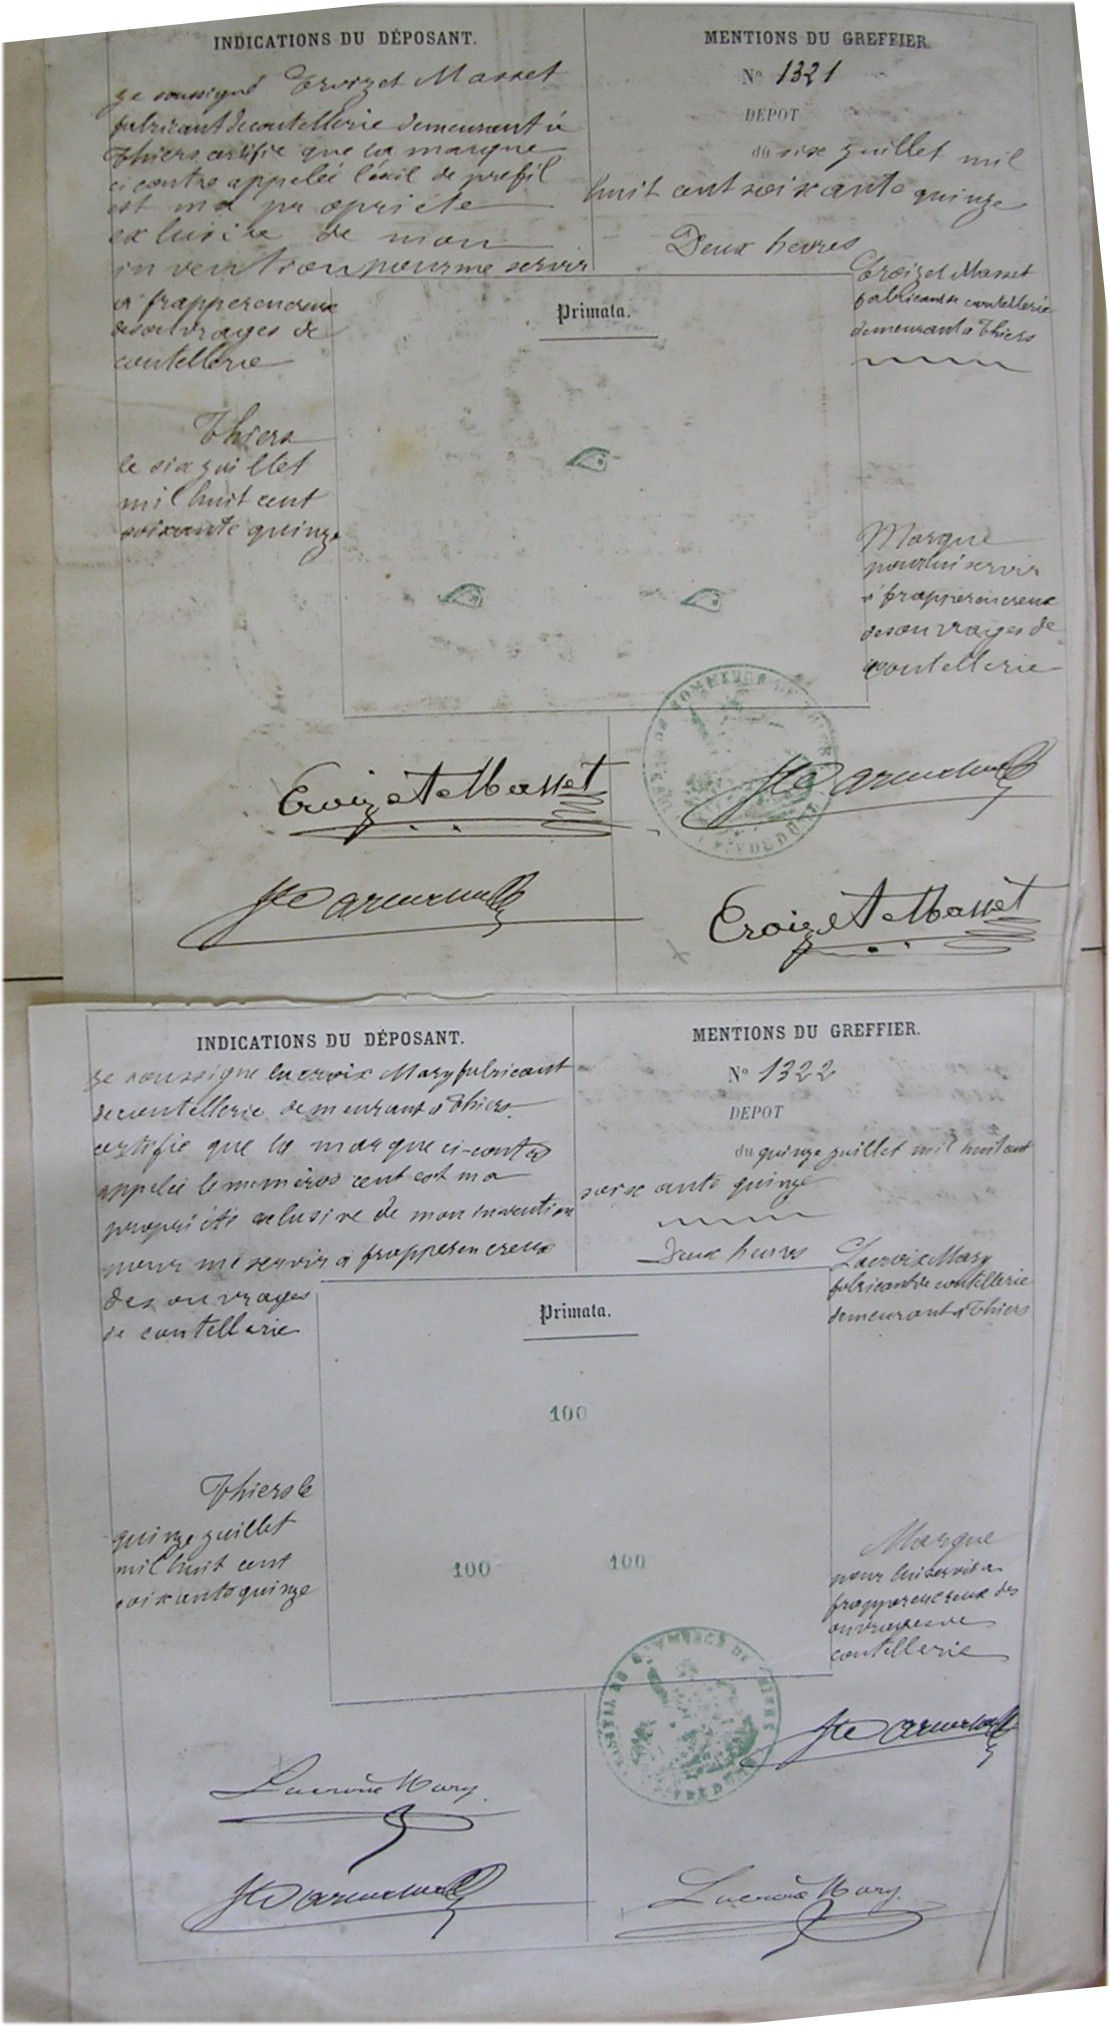 INDICATIONS DU DÉPOSANT.
je soussigné Croizet Masset
fabricant de coutellerie demeurant à
Thiers certifie que la marque
ci contre appelée l'œil de profil
est ma propriete
exclusive de mon
invention pour me servir
a frapper en creux
des ouvrages de
coutellerie
Thiers
le six juillet
mil huit cent
soixante quinze
MENTIONS DU GREFFIER.
N° 1321
DEPOT
du six juillet mil
huit cent soixante quinze
Deux heures
Croizet Masset
fabricant de coutellerie
demeurant a Thiers
Primata.
Marque
pour lui servir
a frapper en creux
des ouvrages de
coutellerie
Croizet Masset
Croizet Masset
INDICATIONS DU DÉPOSANT.
je soussigne Lacroix Mary fabricant
de coutellerie demeurant à Thiers
certifie que la marque ci-contre
appelée le numéros cent est ma
propriété exclusive de mon invention
pour me servir a frapper en creux
des ouvrages
de coutellerie
Thiers le
quinze juillet
mil huit cent
soixante quinze
MENTIONS DU GREFFIER.
N° 1322
DEPOT
du quinze juillet mil huit cent
soixante quinze
Deux heures
Lacroix Mary
fabricant de coutellerie
demeurant a Thiers
Primata.
100
100
100
Marque
pour lui servir a
frapper en creux des
ouvrages de
coutellerie
Lacroix Mary
Lacroix Mary